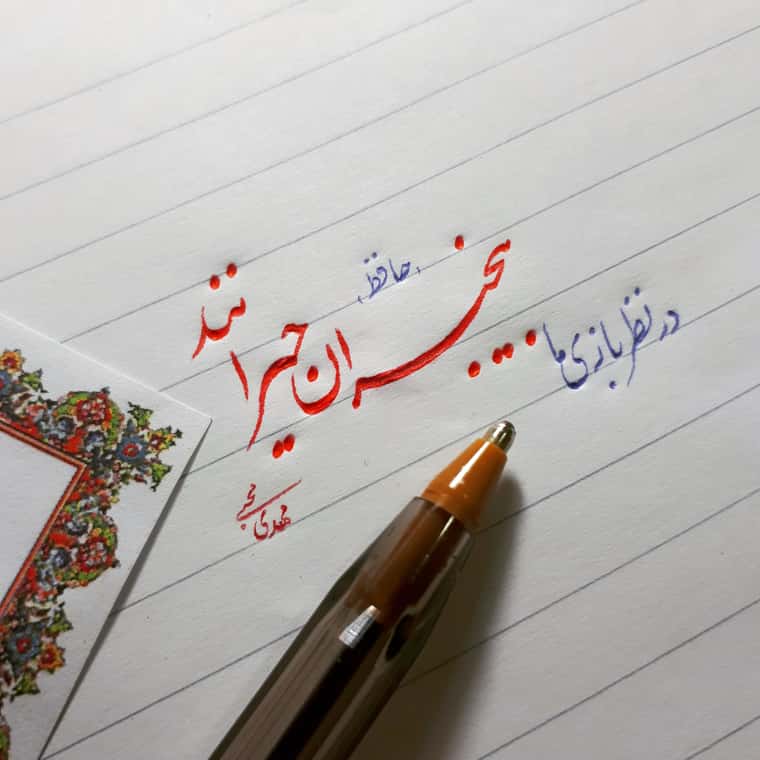 در نظربازی ما
بیخبران حیرانند
حافظ
مهدی